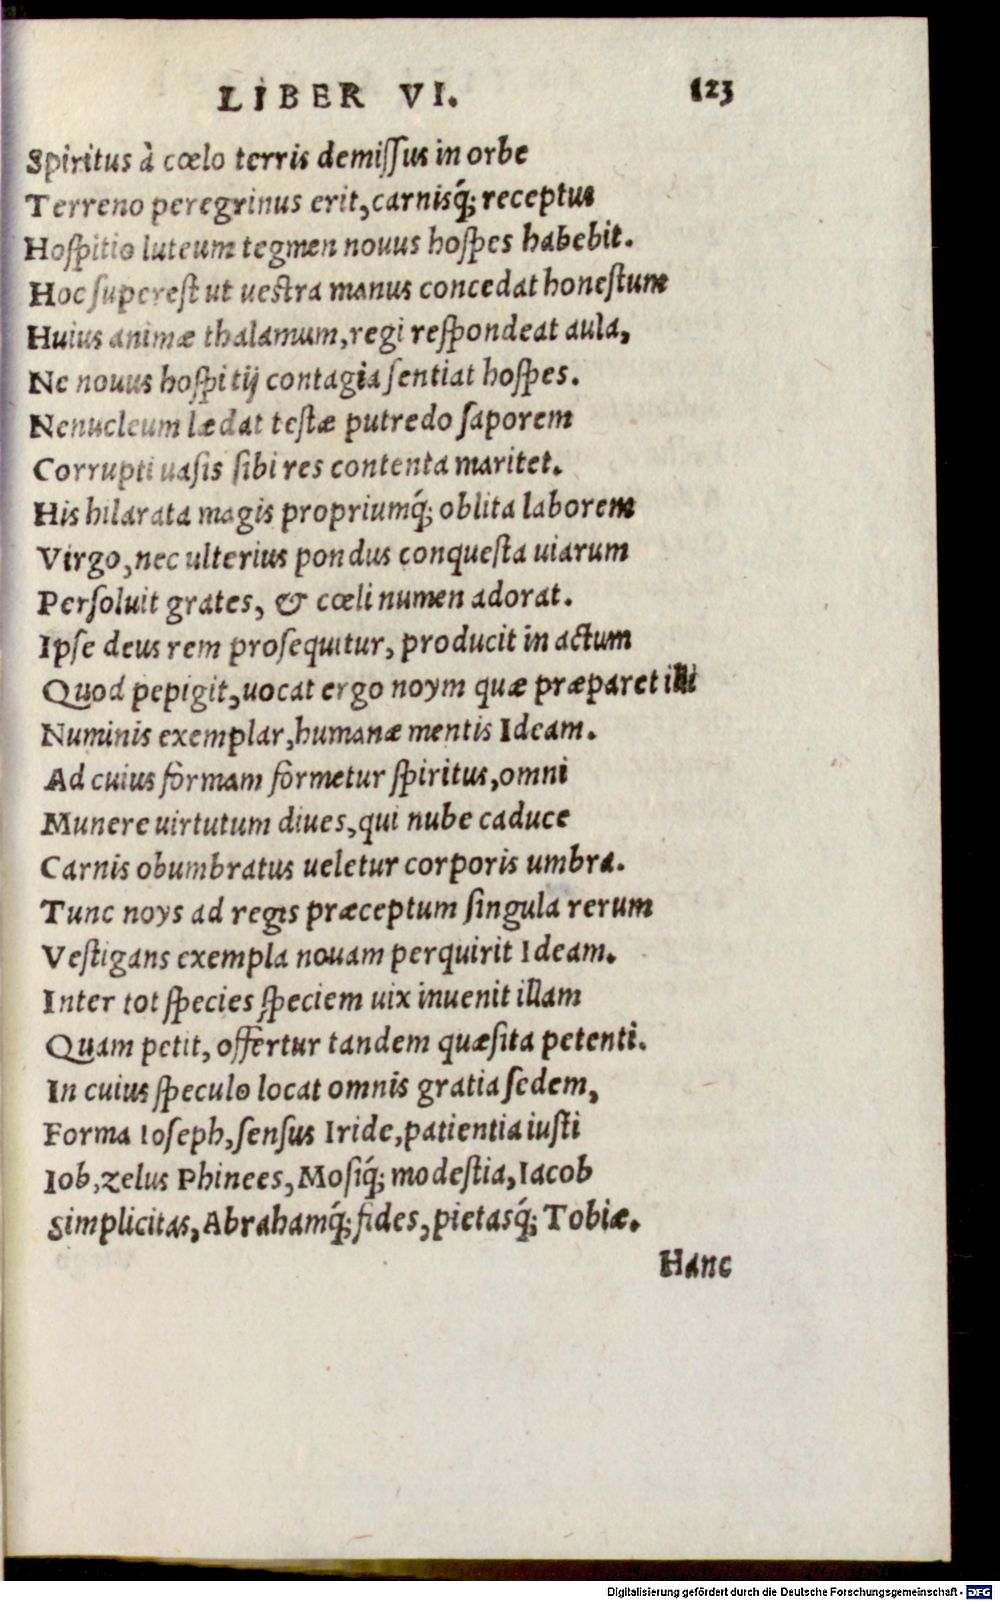 LIBER VI. 123
Spiritus à cœlo terris demiſſus in orbe
Terreno peregrinus erit, carnisq́; receptus
Hoſpitio luteum tegmen nouus hoſpes habebit.
Hoc ſupereſt ut ueſtra manus concedat honeſtum
Huius animæ thalamum, regi reſpondeat aula,
Ne nouus hoſpitij contagia ſentiat hoſpes.
Ne nucleum lædat teſtæ putredo ſaporem
Corrupti uaſis ſibi res contenta maritet.
His hilarata magis propriumq́; oblita laborem
Virgo, nec ulterius pondus conqueſta uiarum
Perſoluit grates, & cœli numen adorat.
Ipſe deus rem proſequitur, producit in actum
Quod pepigit, uocat ergo noym quæ præparet illi
Numinis exemplar, humanæ mentis Ideam.
Ad cuius formam formetur ſpiritus, omni
Munere uirtutum diues, qui nube caduce
Carnis obumbratus ueletur corporis umbra.
Tunc noys ad regis præceptum ſingula rerum
Veſtigans exempla nouam perquirit Ideam.
Inter tot ſpecies ſpeciem uix inuenit illam
Quam petit, offertur tandem quæſita petenti.
In cuius ſpeculo locat omnis gratia ſedem,
Forma Ioſeph, ſenſus Iride, patientia iuſti
Iob, zelus Phinees, Moſiq́; modeſtia, Iacob
Simplicitas, Abrahamq́; fides, pietasq́; Tobiæ.
Hanc
Digitalisierung gefördert durch die Deutsche Forschungsgemeinschaft - DFG